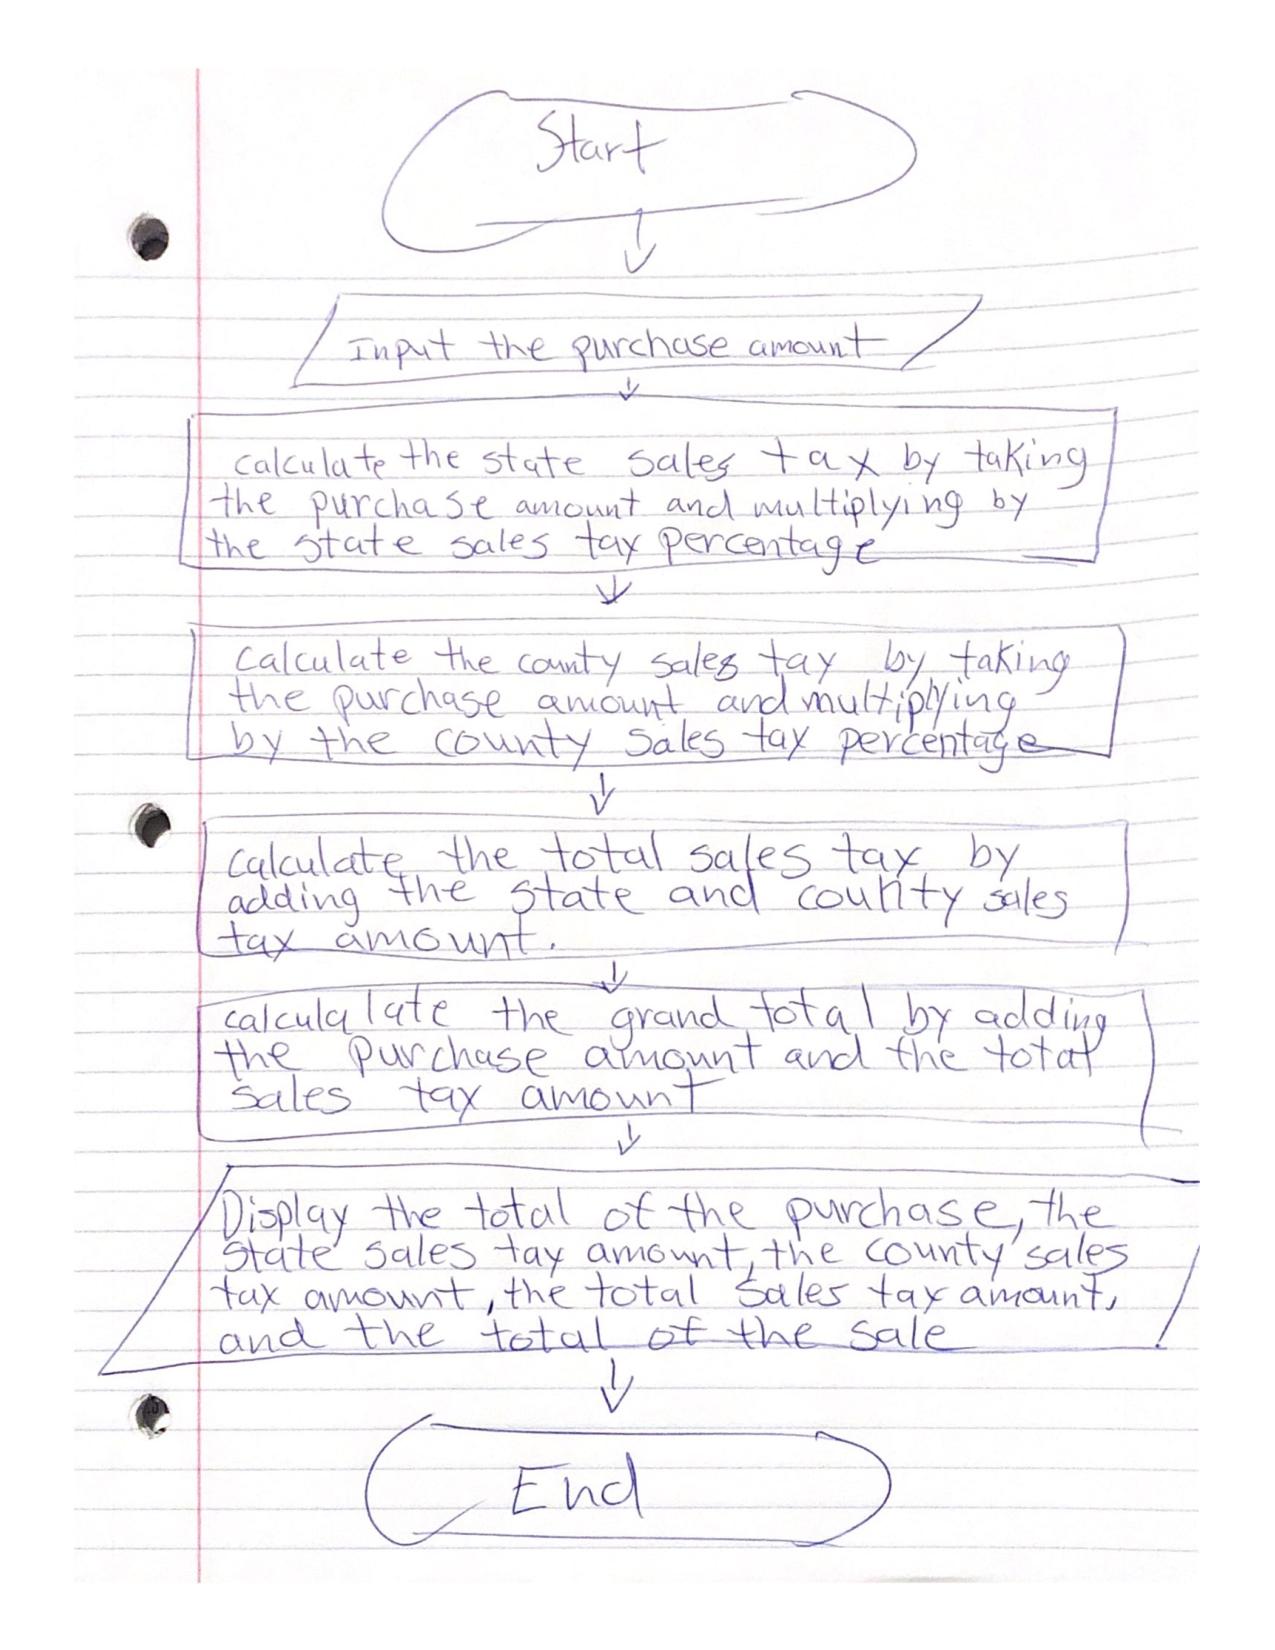 Start
Input the purchase amount
calculate the state sales tax by taking
the purchase amount and multiplying by
the state sales tax percentage
calculate the county sales tax by taking
the purchase amount and multiplying
by the county sales tax percentage
calculate the total sales tax by
adding the state and county sales
tax amount.
calculalate the grand total by adding
the purchase amount and the total
sales tax amount
Display the total of the purchase, the
state sales tax amount, the county sales
tax amount, the total sales tax amount,
and the total of the sale
End